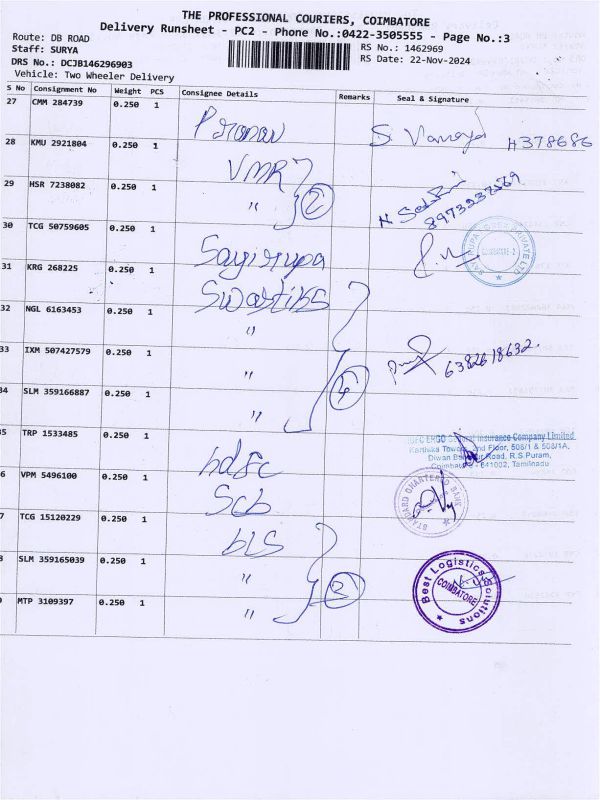 THE PROFESSIONAL COURIERS, COIMBATORE
Delivery Runsheet - PC2 - Phone No.:0422-3505555 - Page No.:3
Route: DB ROAD
Staff: SURYA
RS No.: 1462969
DRS No.: DCJB146296903
RS Date: 22-Nov-2024
Vehicle: Two Wheeler Delivery
S No Consignment No Weight PCS Consignee Details Remarks Seal & Signature
27 CMM 284739 0.250 1 Pranav H378686
28 KMU 2921804 0.250 1 VMR
29 HSR 7238082 0.250 1 " 2
30 TCG 50759605 0.250 1 Sayirupa
31 KRG 268225 0.250 1 Swastiks
32 NGL 6163453 0.250 1 "
33 IXM 507427579 0.250 1 " 6382618632
34 SLM 359166887 0.250 1 " 4
5 TRP 1533485 0.250 1 hdfc
HDFC ERGO General Insurance Company Limited
Karthika Towers, Floor, 508/1 & 508/1A,
Diwan Road, R.S.Puram,
Coimbatore - 641002, Tamilnadu
6 VPM 5496100 0.250 1 Scb
STANDARD CHARTERED BANK
7 TCG 15120229 0.250 1 bLS
8 SLM 359165039 0.250 1 " 3
Best Logistics Solutions
COIMBATORE
9 MTP 3109397 0.250 1 "